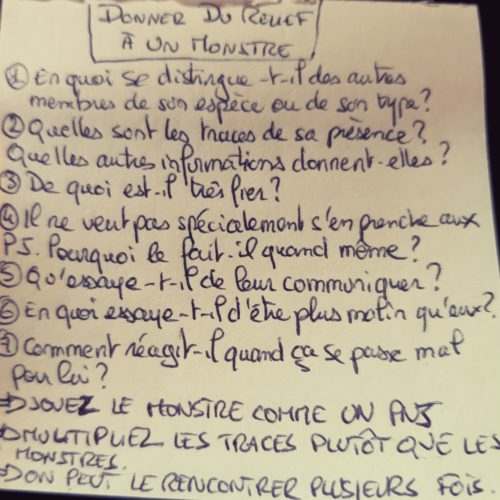 DONNER DU RELIEF
À UN MONSTRE
① En quoi se distingue-t-il des autres
membres de son espèce ou de son type?
② Quelles sont les traces de sa présence?
Quelles autres informations donnent-elles?
③ De quoi est-il très fier?
④ Il ne veut pas spécialement s'en prendre aux
PJ. Pourquoi le fait-il quand même?
⑤ Qu'essaye-t-il de leur communiquer?
⑥ En quoi essaye-t-il d'être plus malin qu'eux?
⑦ Comment réagit-il quand ça se passe mal
pour lui?
⇒ JOUEZ LE MONSTRE COMME UN PNJ
⇒ MULTIPLIEZ LES TRACES PLUTÔT QUE LES
MONSTRES.
⇒ ON PEUT LE RENCONTRER PLUSIEURS FOIS.